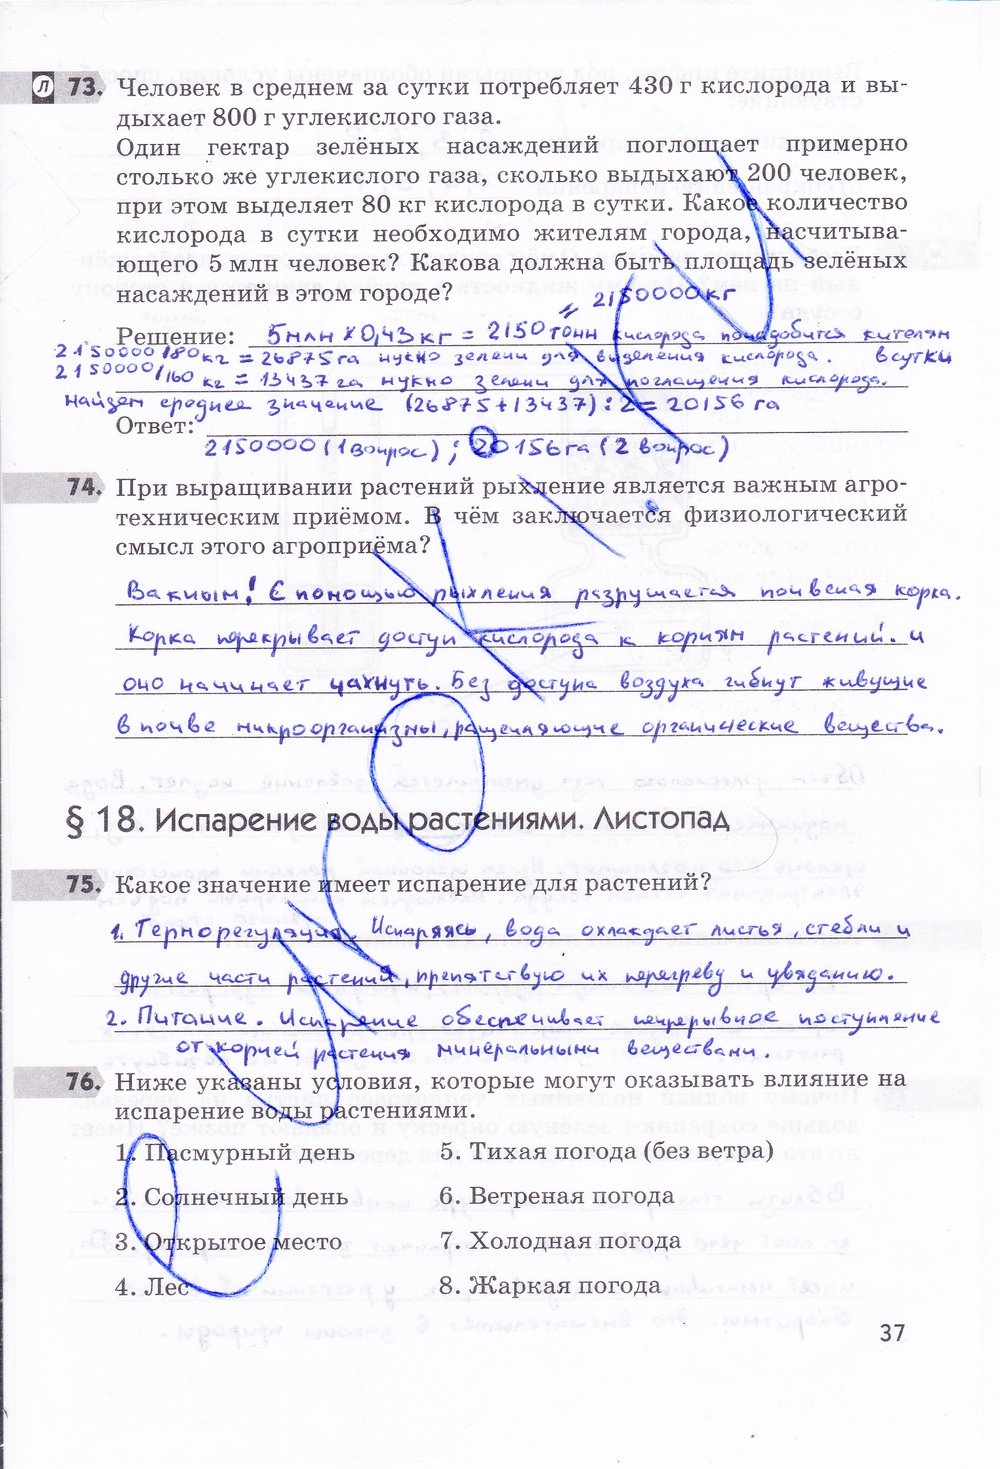 Л 73. Человек в среднем за сутки потребляет 430 г кислорода и вы-
дыхает 800 г углекислого газа.
Один гектар зелёных насаждений поглощает примерно
столько же углекислого газа, сколько выдыхают 200 человек,
при этом выделяет 80 кг кислорода в сутки. Какое количество
кислорода в сутки необходимо жителям города, насчитыва-
ющего 5 млн человек? Какова должна быть площадь зелёных
насаждений в этом городе?
= 2150000 кг
Решение: 5 млн × 0,43 кг = 2150 тонн кислорода понадобится жителям
2150000/80 кг = 26875 га нужно зелени для выделения кислорода. в сутки
2150000/160 кг = 13437 га нужно зелени для поглащения кислорода.
найдем среднее значение (26875+13437):2=20156 га
Ответ:
2150000 (1 вопрос); 20156 га (2 вопрос)
74. При выращивании растений рыхление является важным агро-
техническим приёмом. В чём заключается физиологический
смысл этого агроприёма?
Важным! С помощью рыхления разрушается почвеная корка.
Корка перекрывает доступ кислорода к корням растений. и
оно начинает чахнуть. Без доступа воздуха гибнут живущие
в почве микроорганизмы, ращепляющие органические вещества.
§ 18. Испарение воды растениями. Листопад
75. Какое значение имеет испарение для растений?
1. Терморегуляция. Испаряясь, вода охлаждает листья, стебли и
другие части растения, препятствую их перегреву и увяданию.
2. Питание. Испарение обеспечивает непрерывное поступление
от корней растения минеральными веществами.
76. Ниже указаны условия, которые могут оказывать влияние на
испарение воды растениями.
1. Пасмурный день 5. Тихая погода (без ветра)
2. Солнечный день 6. Ветреная погода
3. Открытое место 7. Холодная погода
4. Лес 8. Жаркая погода
37